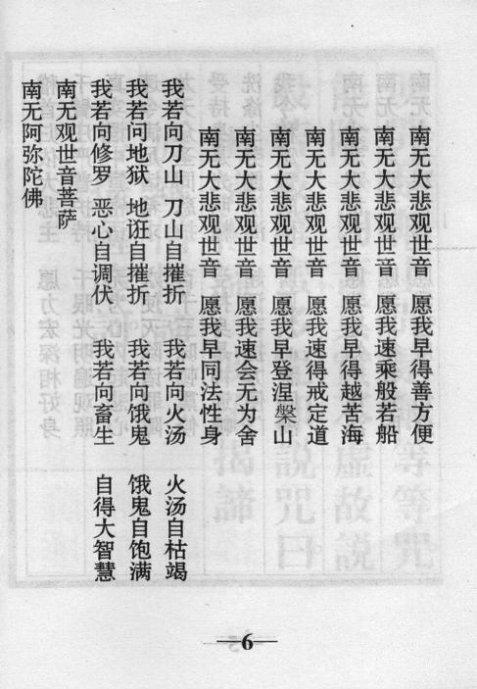 南无大悲观世音 愿我早得善方便
南无大悲观世音 愿我速乘般若船
南无大悲观世音 愿我早得越苦海
南无大悲观世音 愿我速得戒定道
南无大悲观世音 愿我早登涅槃山
南无大悲观世音 愿我速会无为舍
南无大悲观世音 愿我早同法性身
我若向刀山 刀山自摧折 我若向火汤 火汤自枯竭
我若问地狱 地诳自摧折 我若向饿鬼 饿鬼自饱满
我若向修罗 恶心自调伏 我若向畜生 自得大智慧
南无观世音菩萨
南无阿弥陀佛
6